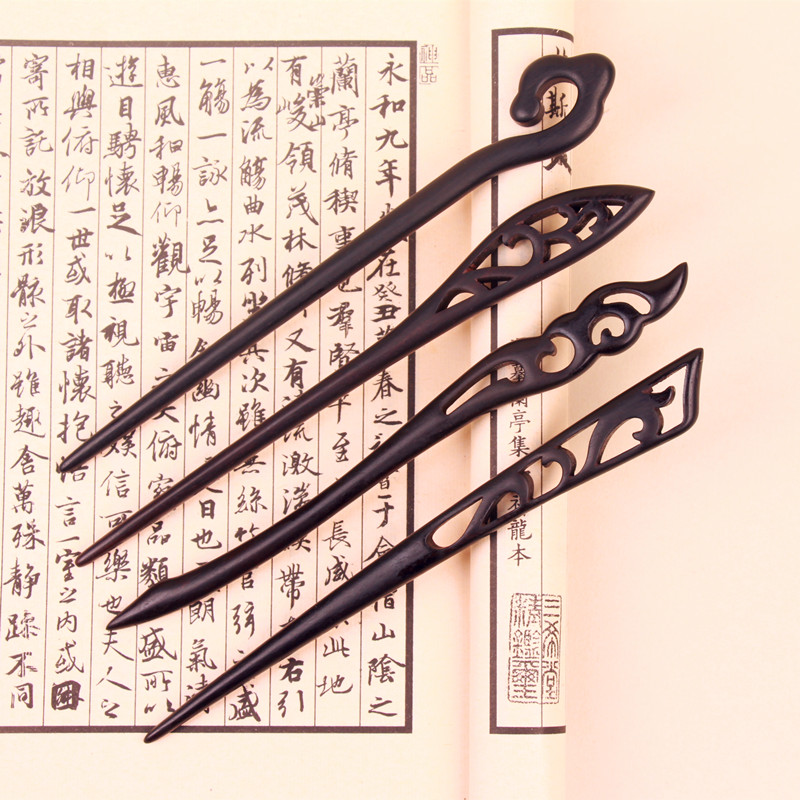 神品
永和九年 在癸丑 春之 于 山陰之
蘭亭脩稧事也羣賢 至 長咸 此地
有崇山峻領茂林脩 又有 流激湍 帶 右引
以為流觴曲水列坐其次雖無絲竹 弦 盛
一觴一詠亦足以暢 幽情 日也 朗氣清
惠風和暢仰觀宇宙之大俯察品類 盛所以
遊目騁懷足以極視聽之娛信可樂也夫人之
相與俯仰一世或取諸懷抱悟言一室之內或
寄所託放浪形骸之外雖趣舍萬殊靜躁不同
蘭亭集 神龍本
三希堂精鑑璽